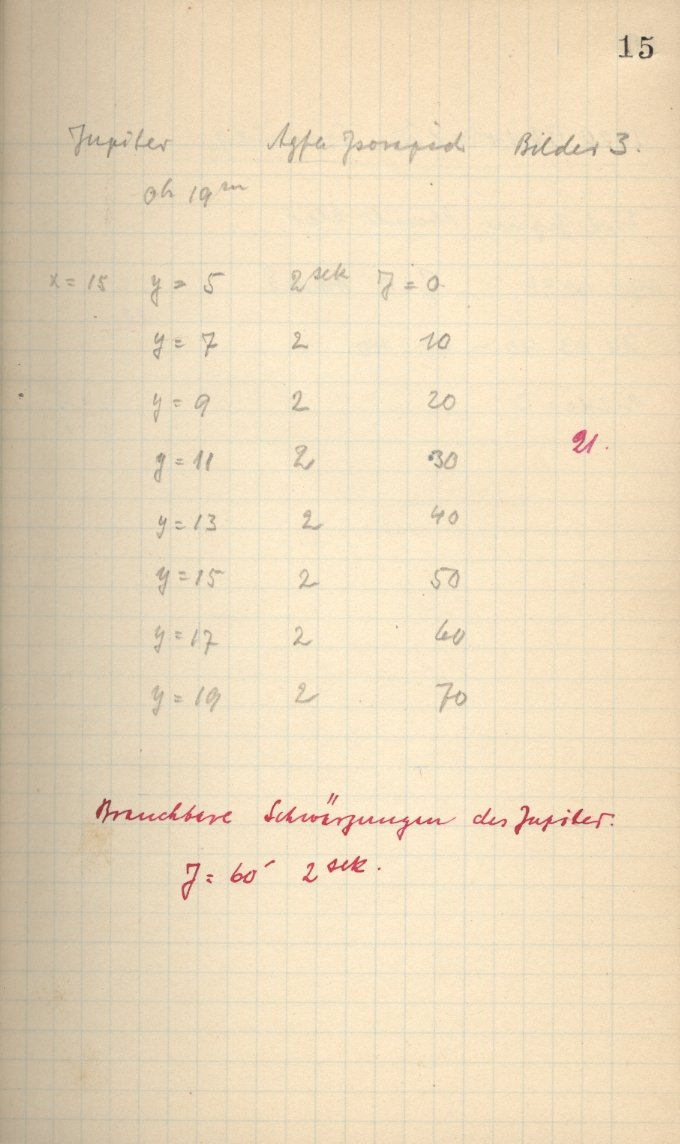 15
Jupiter Agfa Isorapid Bilder 3.
0h 19m
x = 15 y = 5 2 sek J = 0
y = 7 2 10
y = 9 2 20
y = 11 2 30
21.
y = 13 2 40
y = 15 2 50
y = 17 2 60
y = 19 2 70
Brauchbare Schwärzungen des Jupiter.
J = 60 2 sek.